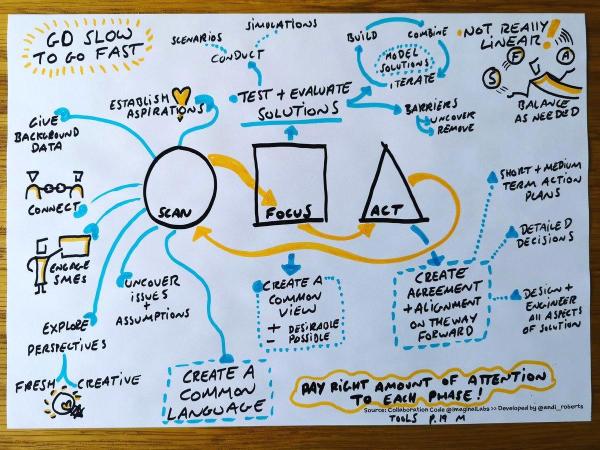 GO SLOW
TO GO FAST
SCENARIOS
SIMULATIONS
CONDUCT
TEST + EVALUATE
SOLUTIONS
BUILD
COMBINE
MODEL
SOLUTIONS
ITERATE
BARRIERS
UNCOVER
REMOVE
NOT REALLY
LINEAR!
S
F
A
BALANCE
AS NEEDED
ESTABLISH
ASPIRATIONS
GIVE
BACKGROUND
DATA
CONNECT
ENGAGE
SMES
EXPLORE
PERSPECTIVES
FRESH
CREATIVE
UNCOVER
ISSUES
+
ASSUMPTIONS
SCAN
FOCUS
ACT
CREATE A
COMMON
LANGUAGE
CREATE A
COMMON
VIEW
+ DESIRABLE
- POSSIBLE
CREATE
AGREEMENT
+ ALIGNMENT
ON THE WAY
FORWARD
SHORT + MEDIUM
TERM ACTION
PLANS
DETAILED
DECISIONS
DESIGN +
ENGINEER
All ASPECTS
OF SOLUTION
PAY RIGHT AMOUNT OF ATTENTION
TO EACH PHASE!
Source: Collaboration Code @ImagineLabs >> Developed by @andi_roberts
TOOLS P.19 M